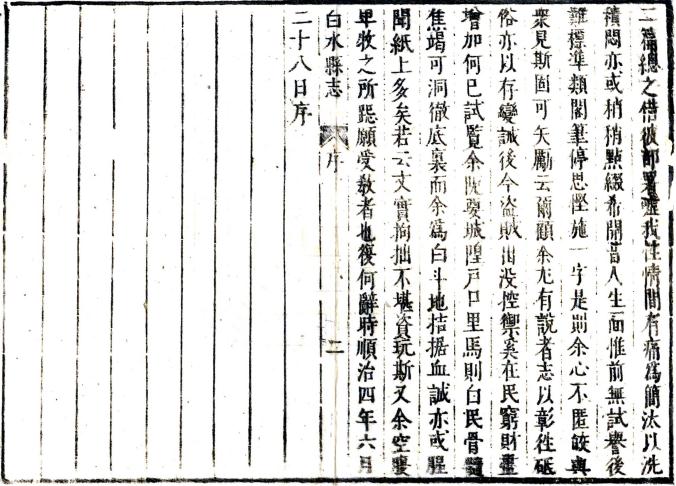 二篇總之借彼部署靈我性情間有痛為簡汰以洗
積悶亦或稍稍點綴希開昔人生面惟前無試譽後
難標準類閣筆停思慳施一字是則余心不匿皎與
眾見斯固可矢勵云爾顧余尤有說者志以彰往砥
俗亦以存變誡後今盜賊出没控禦奚在民窮財盡
增加何已試覽余阨要城隍戸口里馬則白民骨髓
焦竭可洞徹底裏而余爲白斗地拮据血誠亦或腥
聞紙上多矣若云文實拘拙不堪資玩斯又余空疎
卑牧之所跽願受敎者也復何辭時順治四年六月
白水縣志 序 二
二十八日序